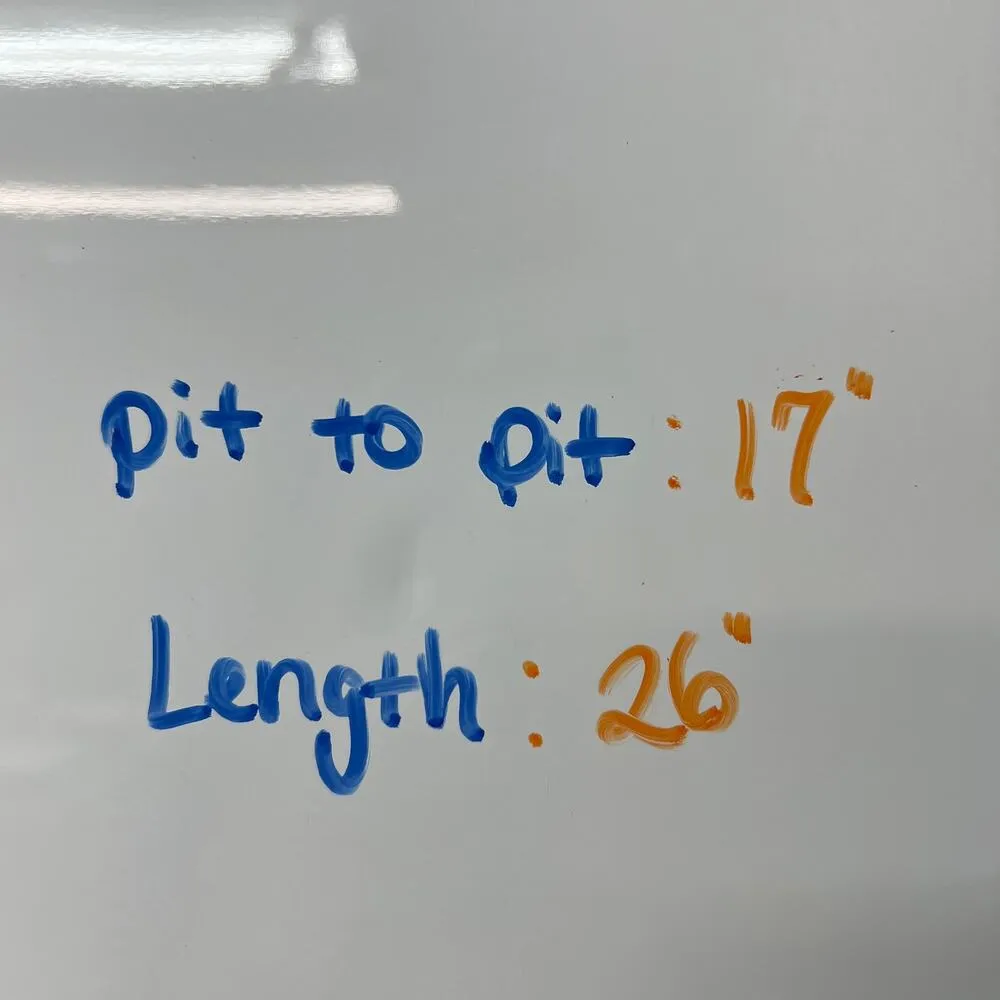 pit to pit : 17"
Length : 26"